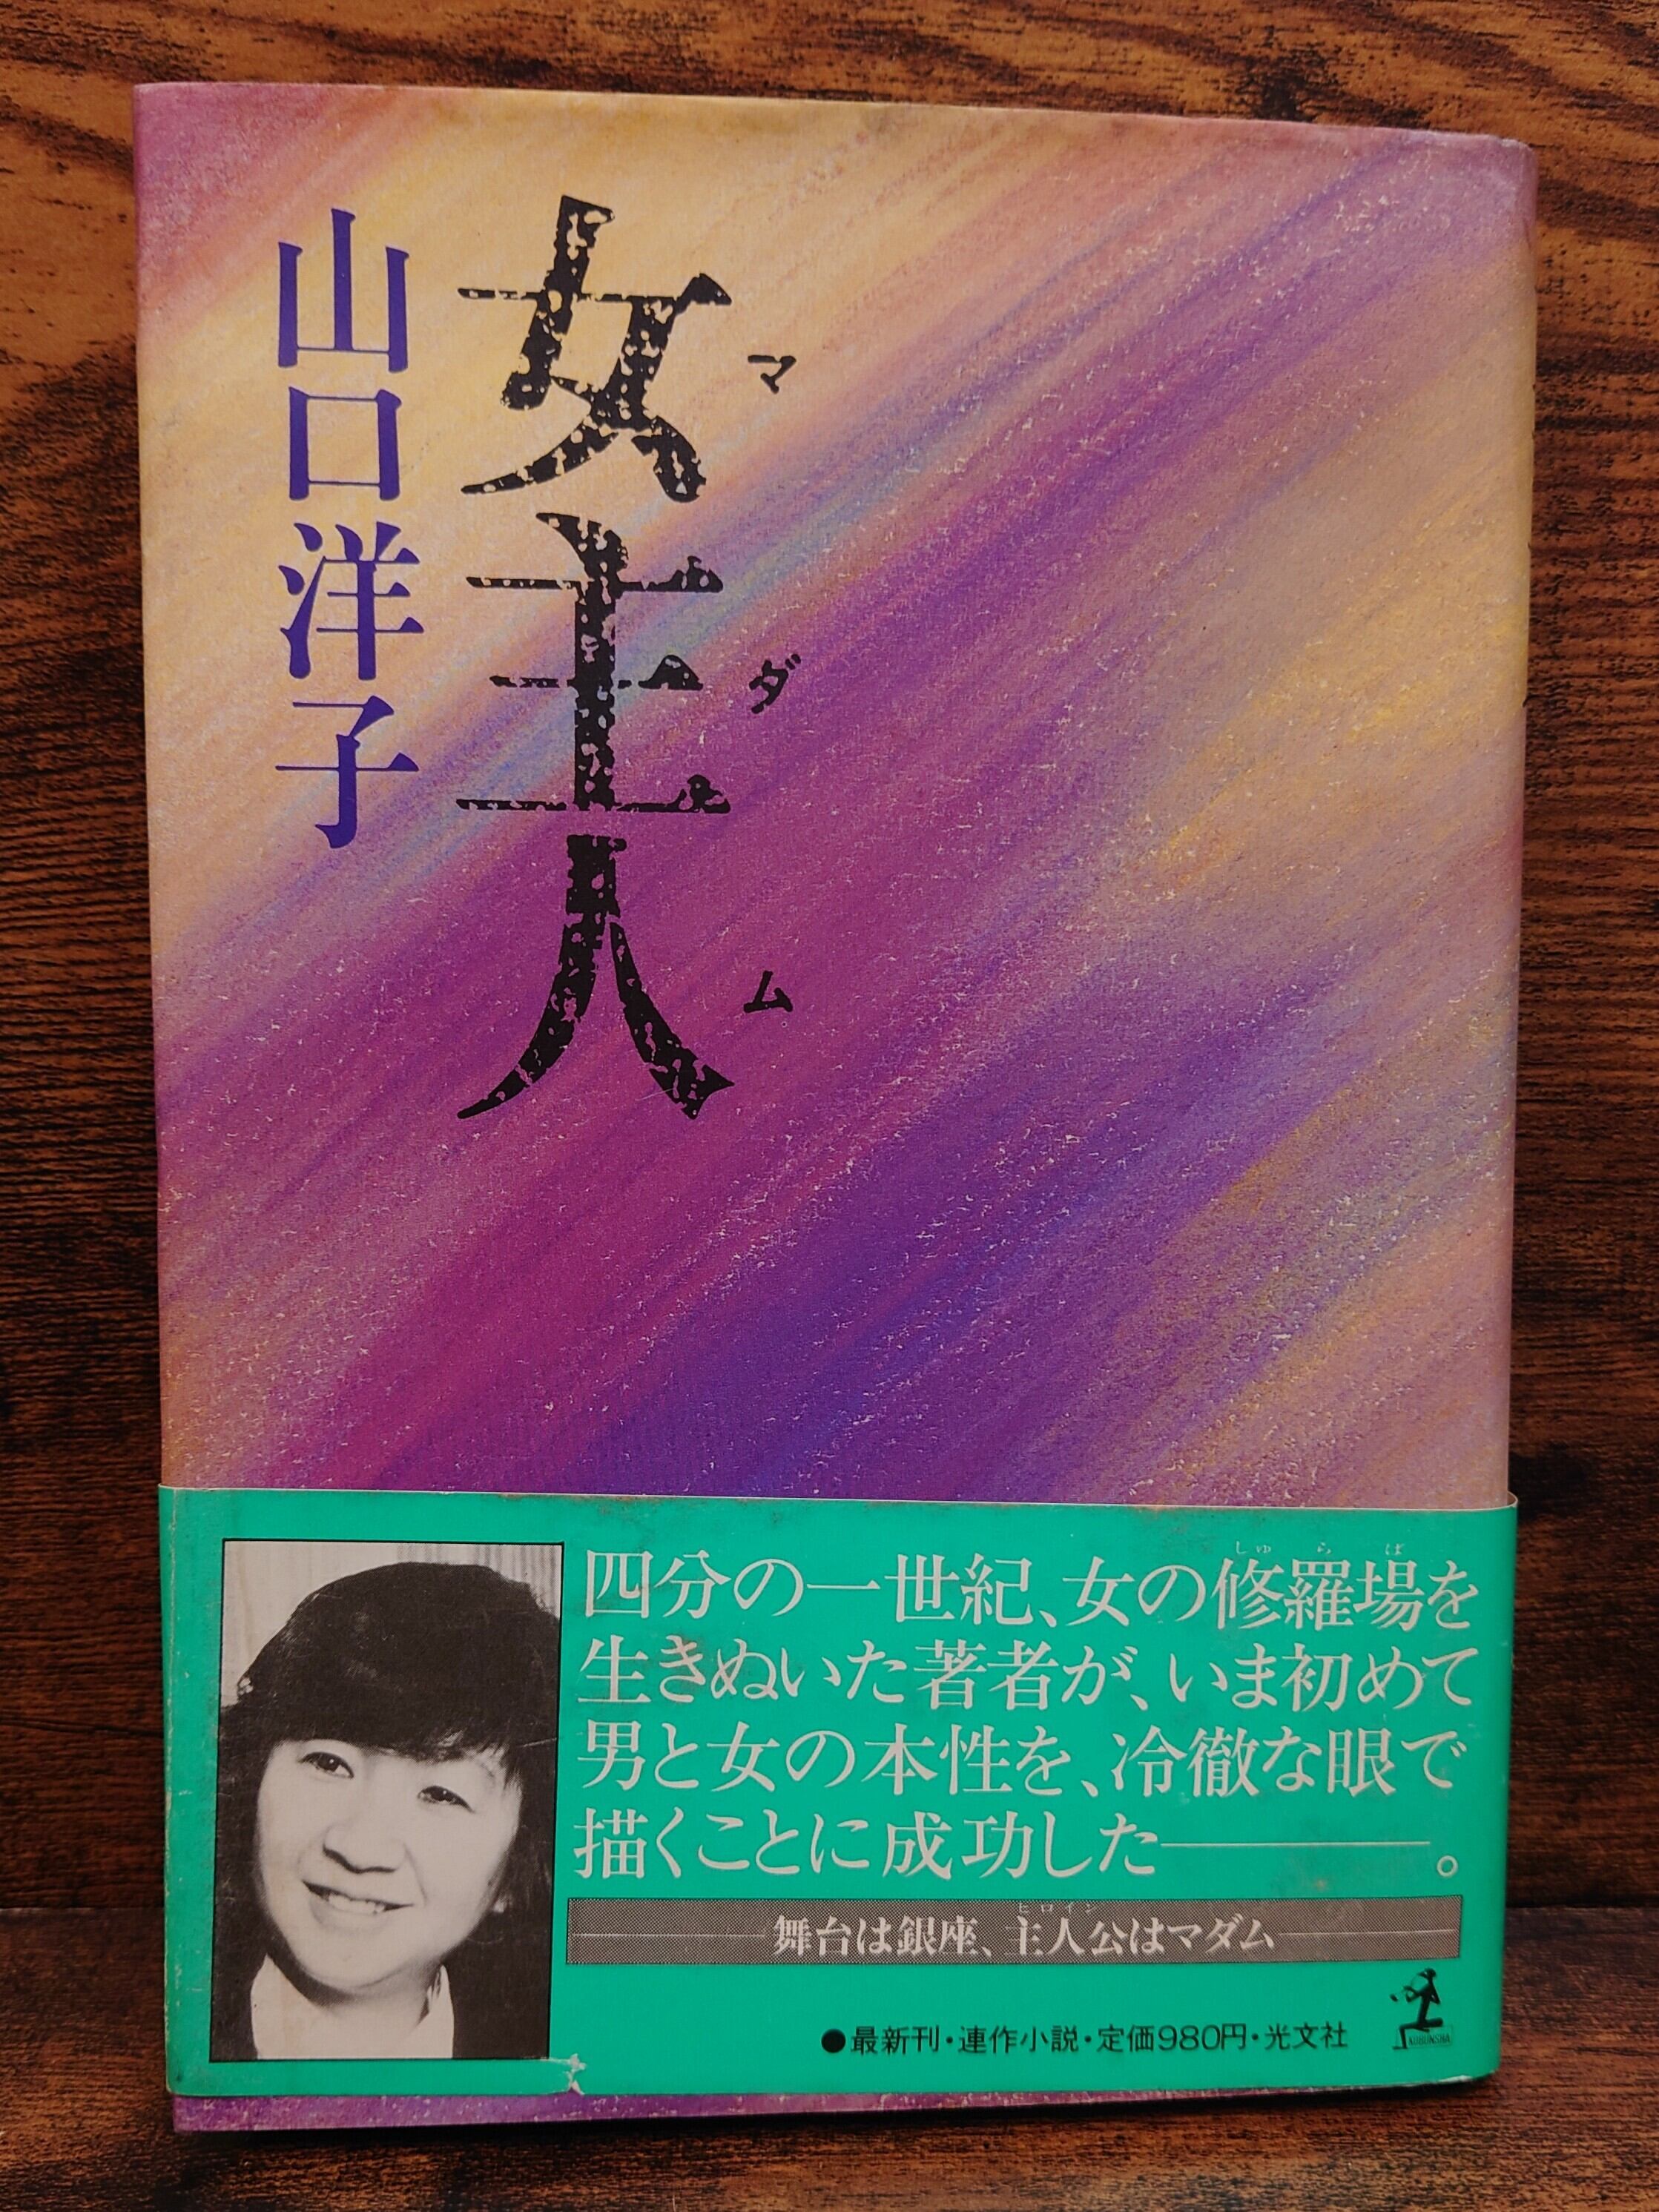 女主人
マダム
山口洋子
四分の一世紀、女の修羅場を
しゅらば
生きぬいた著者が、いま初めて
男と女の本性を、冷徹な眼で
描くことに成功した――。
舞台は銀座、主人公はマダム
ヒロイン
●最新刊・連作小説・定価980円・光文社
KOBUNSHA